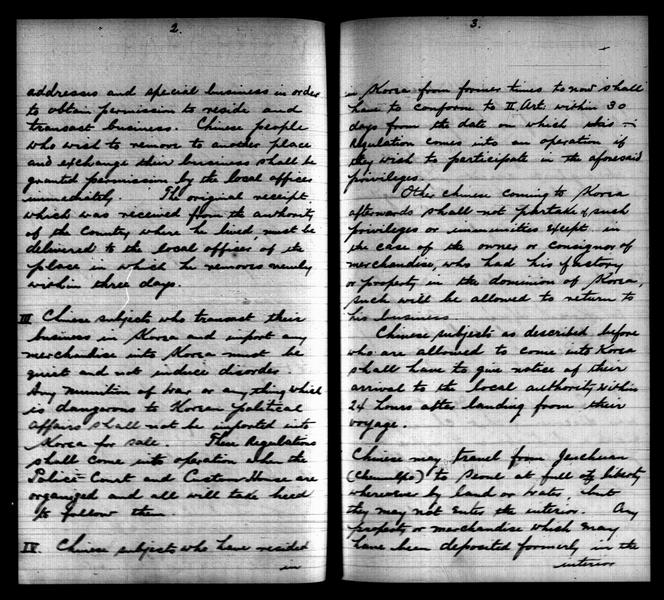 2.
addresses and special business in order
to obtain permission to reside and
transact business. Chinese people
who wish to remove to another place
and exchange their business shall be
granted permission by the local offices
immediately. The original receipt,
which was received from the authority
of the Country where he lived must be
delivered to the local officer of the
place in which he removes newly
within three days.
III Chinese subjects who transact their
business in Korea and import any
merchandise into Korea must be
quiet and not induce disorder.
Any munition of War or anything which
is dangerous to Korean political
affairs shall not be imported into
Korea for sale. These Regulations
shall come into operation when the
Police Court and Custom House are
organized and all will take heed
to follow them.
IV. Chinese subjects who have resided
in
3.
in Korea from former times to now shall
have to conform to II Art. within 30
days from the date on which this
Regulation comes into an operation if
they wish to participate in the aforesaid
privileges.
Other Chinese coming to Korea
afterwards shall not partake of such
privileges or immunities except in
the case of the owner or consignor of
merchandise, who had his factory
or property in the dominion of Korea,
such will be allowed to return to
his business
Chinese subjects as described before
who are allowed to come into Korea
shall have to give notice of their
arrival to the local authority within
24 hours after landing from their
voyage.
Chinese may travel from
(Chemulpo) to Seoul at full liberty
wherever by land or water, but
they may not enter the interior. Any
property or merchandise which may
have been deposited formerly in the
interior